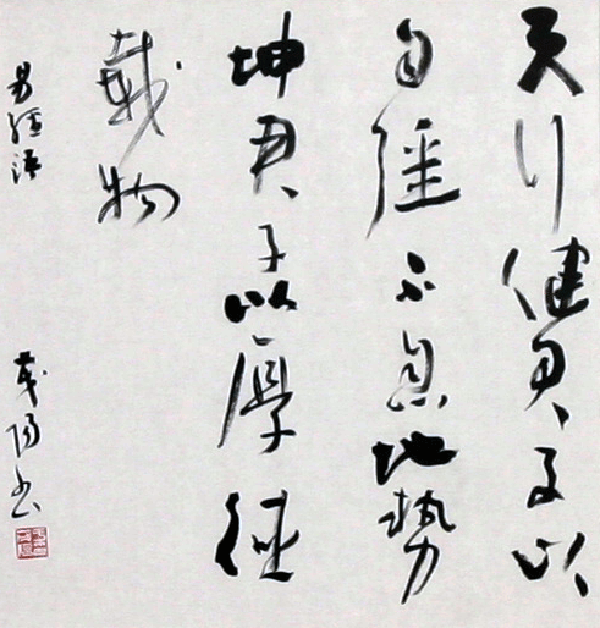 天行健君子以
自彊不息地势
坤君子以厚德
载物
易经语
茂阳书